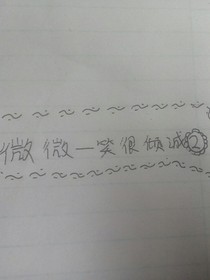 微微一笑很倾诚②